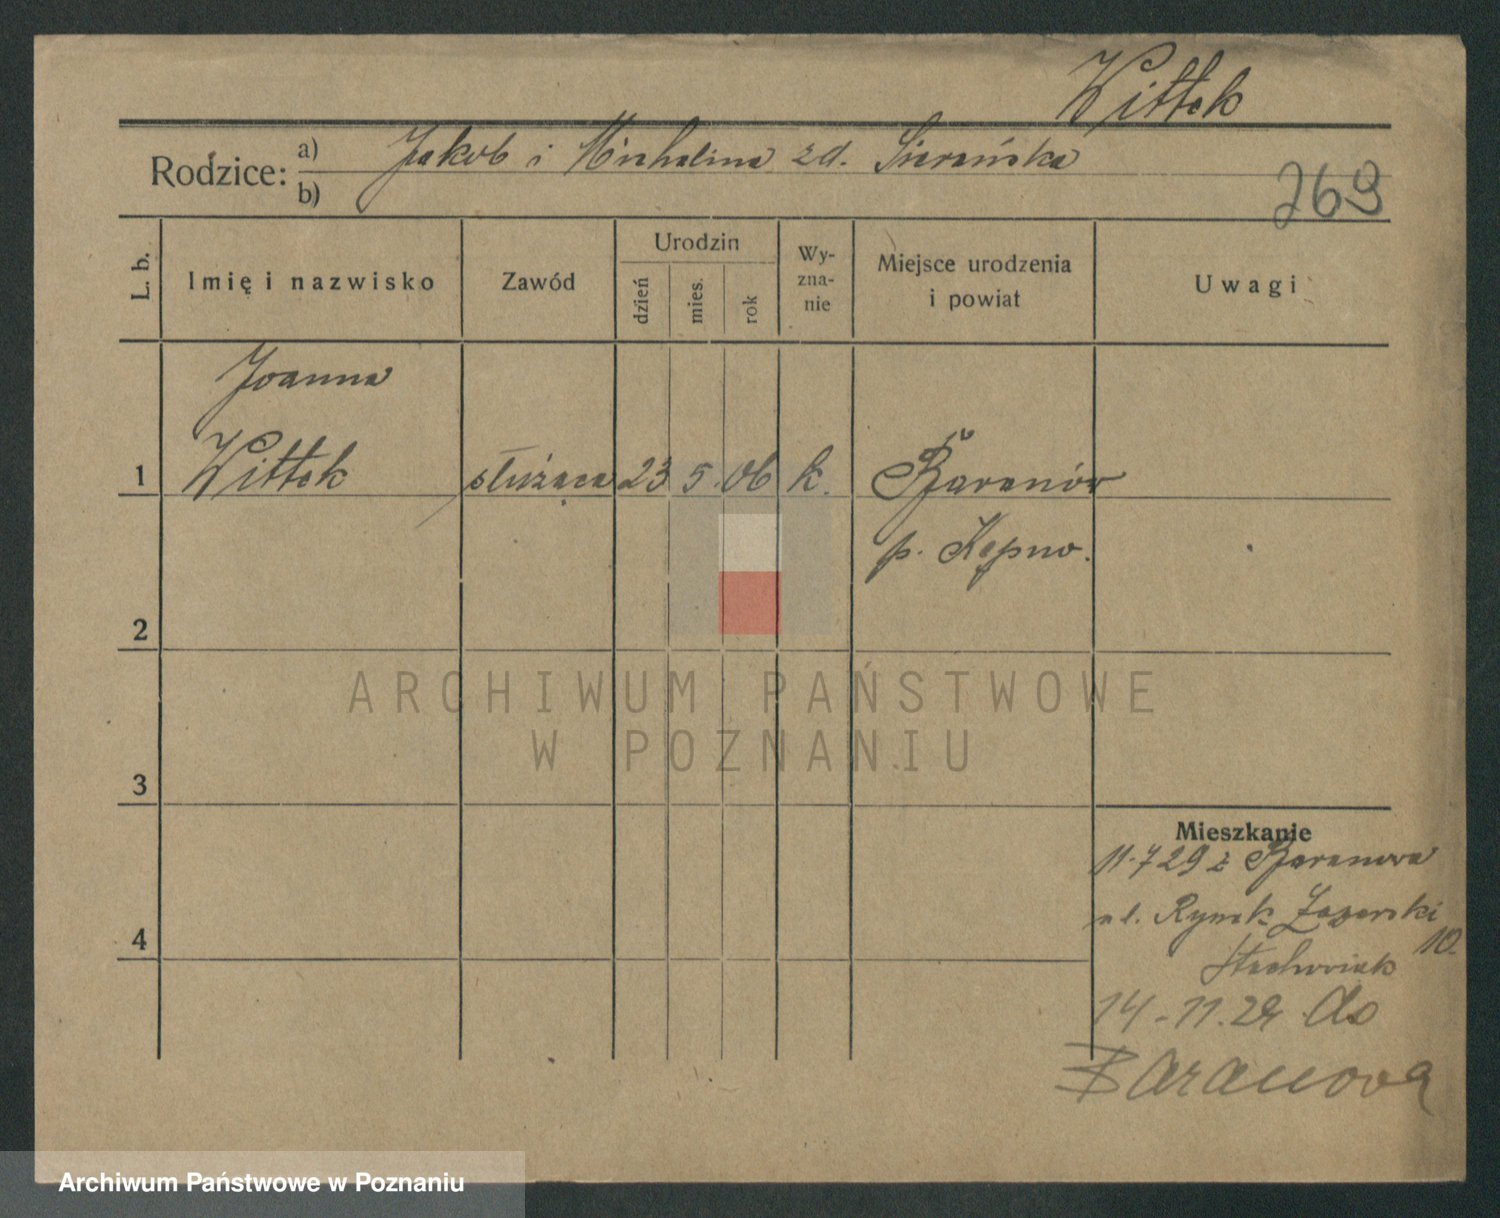 Wittek
Rodzice: a) Jakob i Michalina zd. Sierańska
b)
269
L. b. Imię i nazwisko Zawód Urodzin dzień mies. rok Wy-zna-nie Miejsce urodzenia i powiat Uwagi
Joanna
1 Wittek służąca 23 5 06 k. Baranów
p. Kępno.
2
ARCHIWUM PAŃSTWOWE
W POZNANIU
3
Mieszkanie
11.7 29 z Baranowa
ul. Rynek Łazarski
10.
4
Stachowiak
14-11.29 do
Baranowa
Archiwum Państwowe w Poznaniu